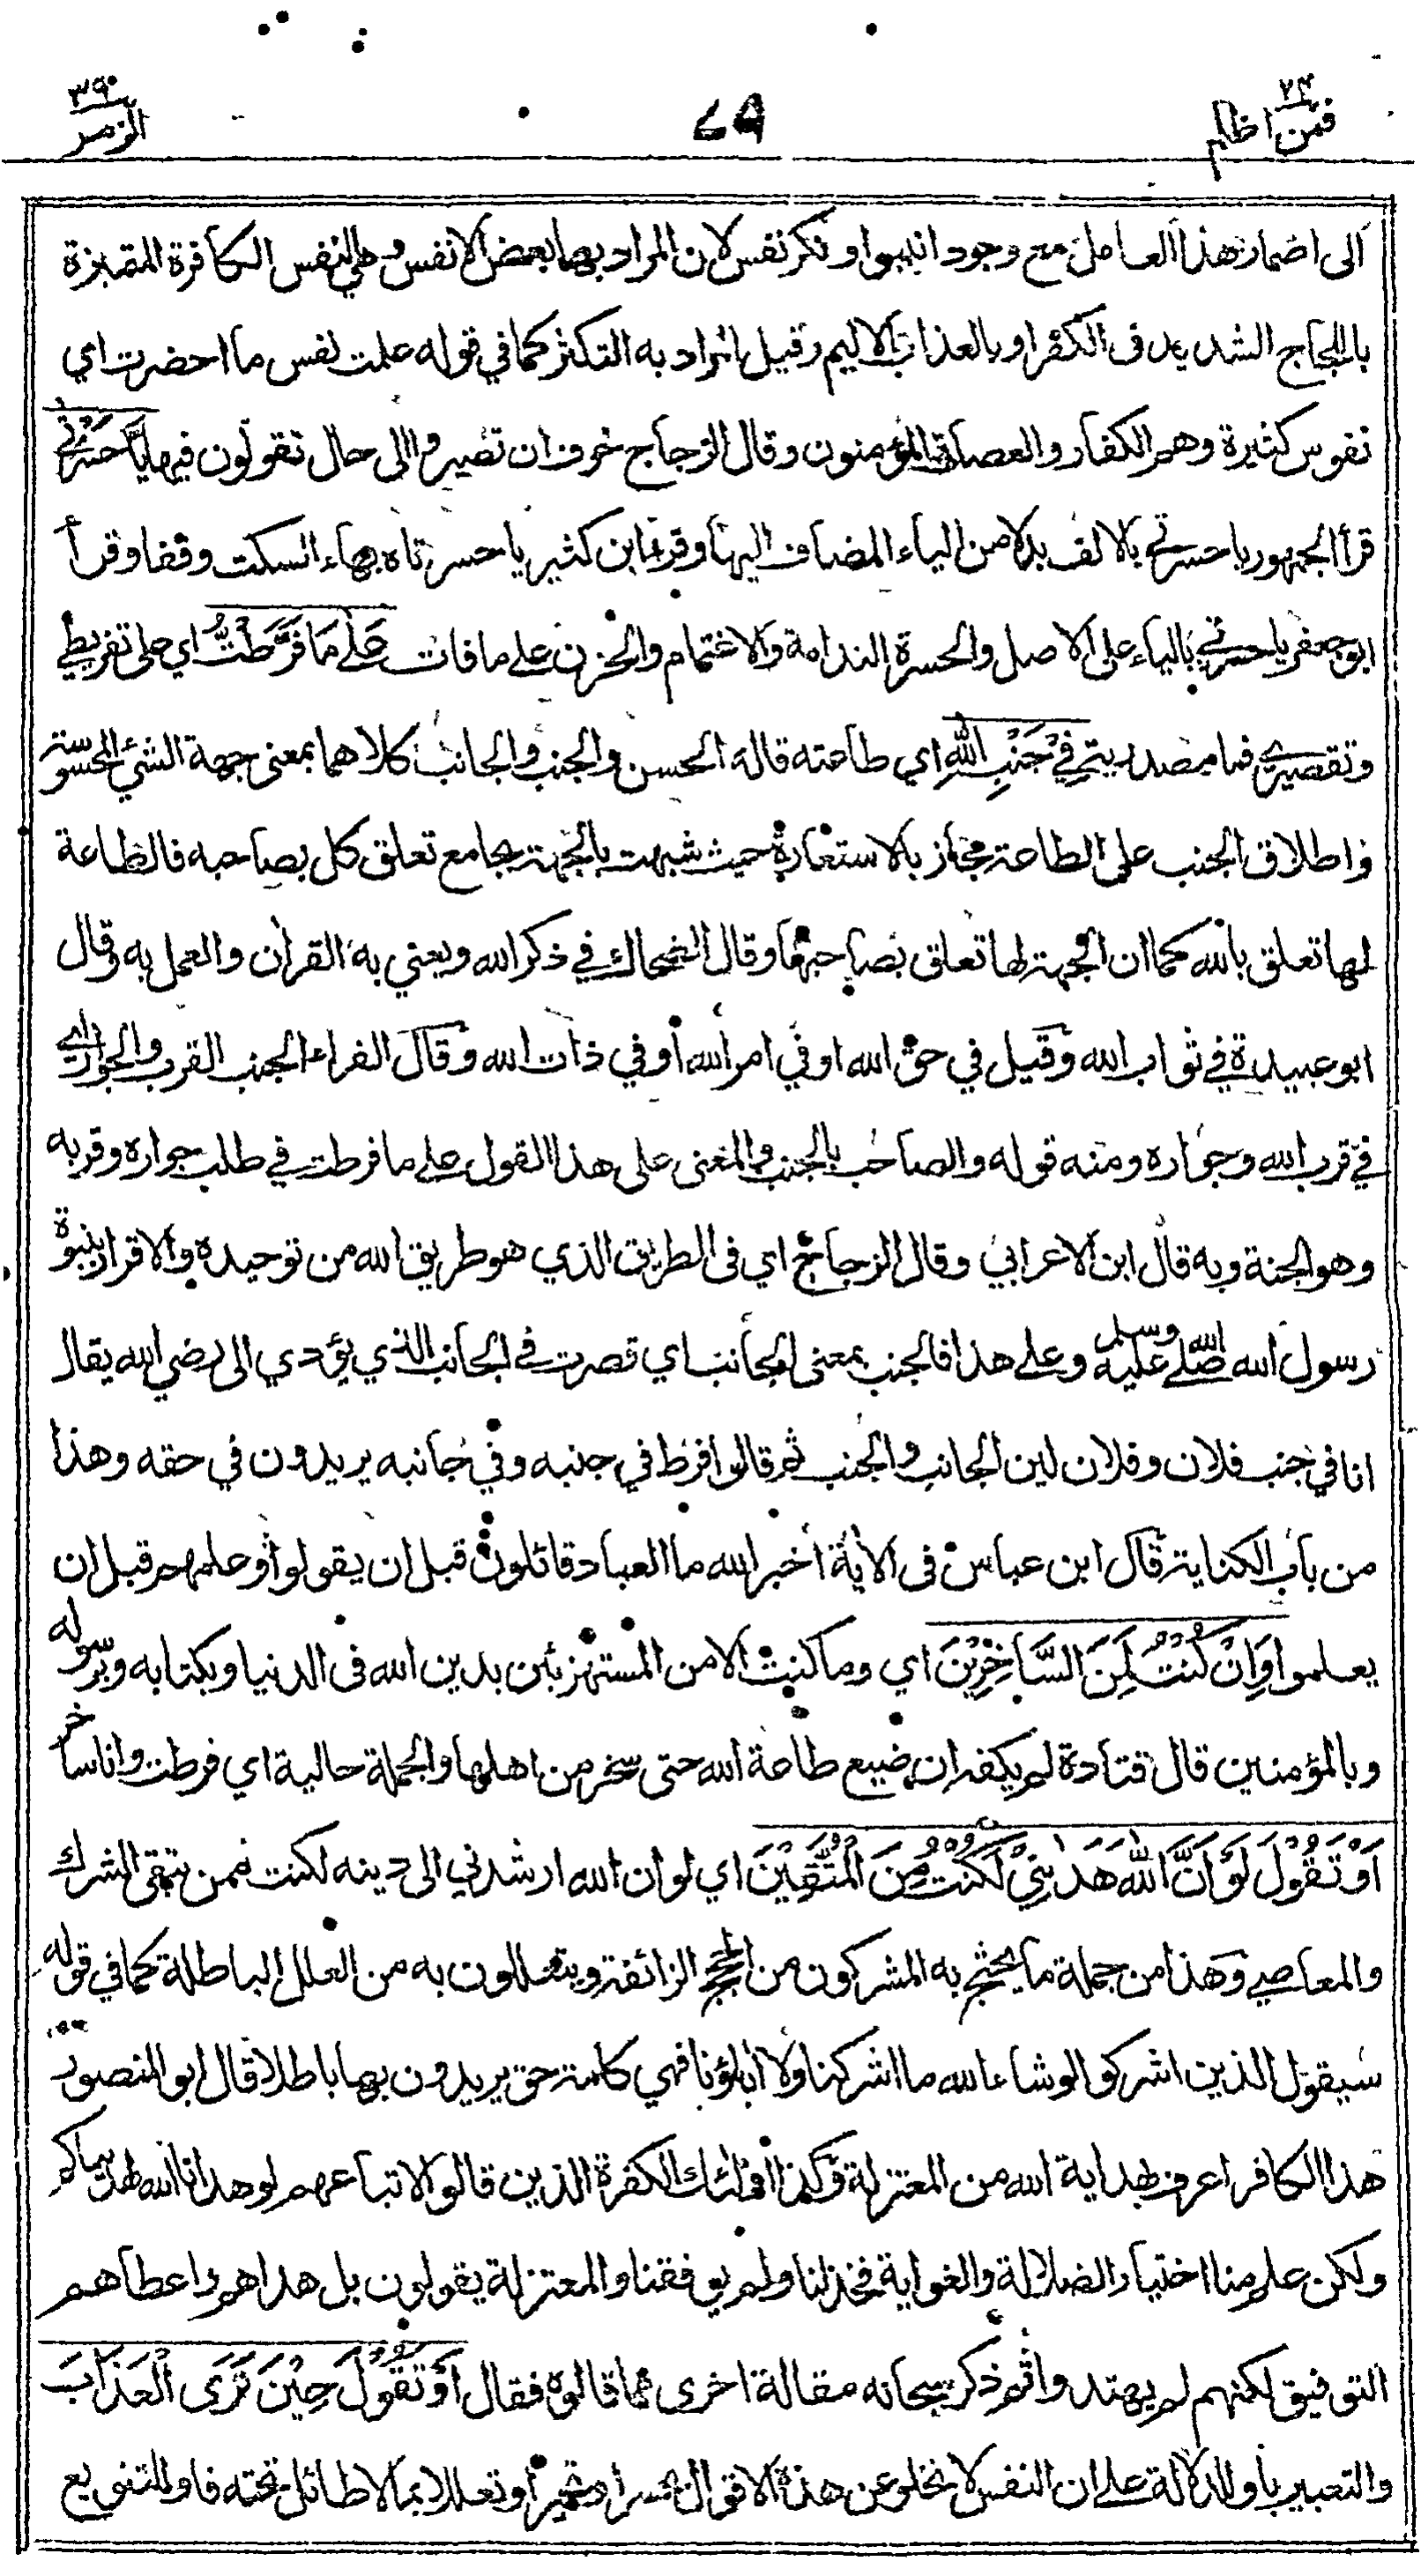 فمن اظلم ٢٤
٧٩
الزمر ٣٩
الى اضمار هذا العامل مع وجود انيبوا ونكر نفس لان المراد بها بعض الانفس وهي النفس الكافرة المتميزة
باللجاج الشديد فى الكفر او بالعذاب الاليم وقيل المراد به التكثر كما في قوله علمت نفس ما احضرت اي
نفوس كثيرة وهم الكفار والعصاة المؤمنون وقال الزجاج خوف ان تصيروا الى حال تقولون فيها يَا حَسْرَتٰى
قرأ الجمهور يا حسرتى بالالف بدلا من الياء المضاف اليها وقرء ابن كثير يا حسرتاه بهاء السكت وقفا وقرأ
ابو جعفر يا حسرتي بالياء على الاصل والحسرة الندامة والاغتمام والحزن على ما فات عَلٰى مَا فَرَّطْتُّ اي على تفريطي
وتقصيري فما مصدرية فِيْ جَنْبِ اللّٰهِ اي طاعته قاله الحسن والجنب والجانب كلاهما بمعنى جهة الشئ المحسوسة
واطلاق الجنب على الطاعة مجاز بالاستعارة حيث شبهت بالجهة بجامع تعلق كل بصاحبه فالطاعة
لها تعلق بالله كما ان الجهة لها تعلق بصاحبها وقال الضحاك في ذكر الله ويعني به القرأن والعمل به وقال
ابو عبيدة في ثواب الله وقيل في حق الله او في امر الله أو في ذات الله وقال الفراء الجنب القرب والجوار اي
في قرب الله وجواره ومنه قوله والصاحب بالجنب والمعنى على هذا القول على ما فرطت في طلب جواره وقربه
وهو الجنة وبه قال ابن الاعرابي وقال الزجاج اي فى الطريق الذي هو طريق الله من توحيده والاقرار بنبوة
رسول الله صلى الله عليه وسلم وعلى هذا فالجنب بمعنى الجانب اي قصرت في الجانب الذي يؤدي الى رضي الله يقال
انا في جنب فلان وفلان لين الجانب والجنب ثم قالوا فرط في جنبه وفي جانبه يريدون في حقه وهذا
من باب الكناية قال ابن عباس فى الأية أخبر الله ما العباد قائلون قبل ان يقولوا وعلمهم قبل ان
يعلموا وَاِنْ كُنْتُ لَمِنَ السَّاخِرِيْنَ اي وما كنت الا من المستهزئين بدين الله فى الدنيا وبكتابه وبرسوله
وبالمؤمنين قال قتادة لم يكفه ان ضيع طاعة الله حتى سخر من اهلها والجملة حالية اي فرطت وانا ساخر
اَوْ تَقُوْلَ لَوْ اَنَّ اللّٰهَ هَدٰىنِيْ لَكُنْتُ مِنَ الْمُتَّقِيْنَ اي لو ان الله ارشدني الى دينه لكنت ممن يتقى الشرك
والمعاصي وهذا من جملة ما يحتج به المشركون من الحجج الزائفة ويتعللون به من العلل الباطلة كما في قوله
سيقول الذين اشركوا لو شاء الله ما اشركنا ولا أباؤنا فهي كلمة حق يريدون بها باطلا قال ابو المنصور
هذا الكافر اعرف بهداية الله من المعتزلة وكذا اولئك الكفرة الذين قالوا لاتباعهم لو هدانا الله لهديناكم
ولكن علم منا اختيار الضلالة والغواية فخذلنا ولم يوفقنا والمعتزلة يقولون بل هداهم واعطاهم
التوفيق لكنهم لم يهتدوا ثم ذكر سبحانه مقالة اخرى مما قالوه فقال اَوْ تَقُوْلَ حِيْنَ تَرَى الْعَذَابَ
والتعبير بأو للدلالة على ان النفس لا تخلو عن هذه الاقوال تحسرا وتحيرا وتعللا بما لا طائل تحته فاو للتنويع